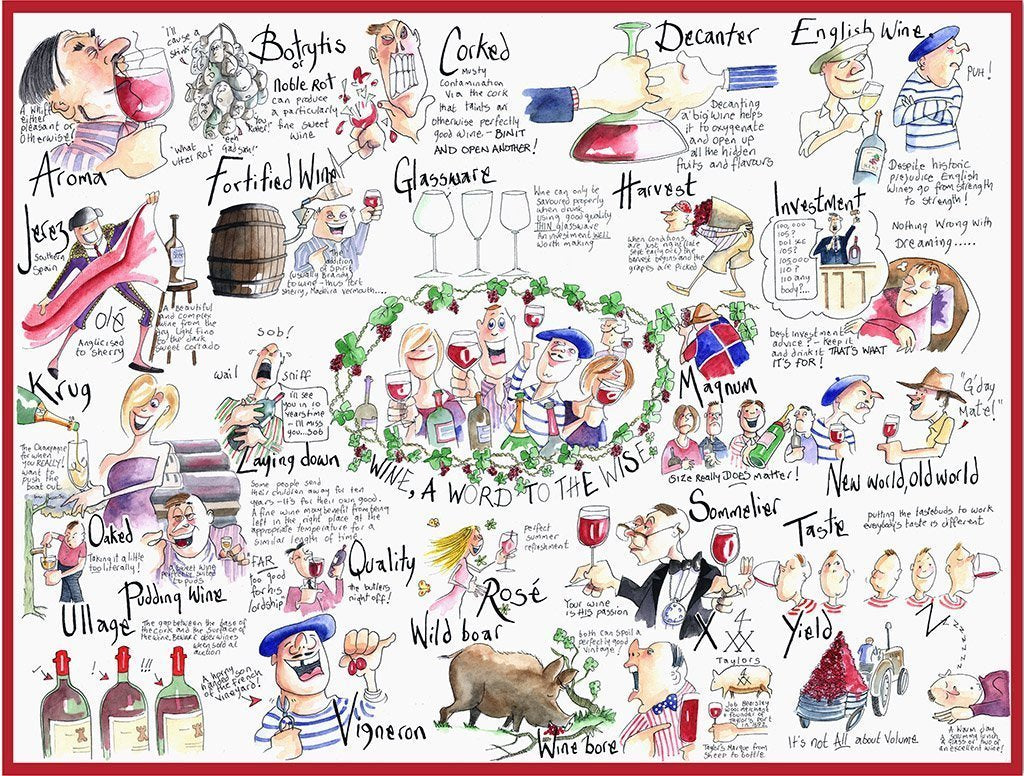 Aroma
A whiff
either
pleasant or
otherwise!
"I'll
cause a
stink"
"What
utter Rot
Botrytis
or
Noble Rot
can produce
a particularly
fine sweet
wine
Corked
Musty
contamination
via the cork
that taints an
otherwise perfectly
good wine - BIN IT
AND OPEN ANOTHER!
Decanter
Decanting
a big wine helps
it to oxygenate
and open up
all the hidden
fruits and flavours
English Wine
PUH!
Despite historic
prejudice English
Wines go from strength
to strength!
Jerez
Southern
Spain
Olé
Anglicised
to sherry
A beautiful
and complex
wine from the
dry, light fino
to the dark
sweet
Fortified Wine
The
addition
of spirit
(usually brandy)
to wine - thus Port
sherry, Madeira vermouth....
Glassware
Wine can only be
savoured properly
when drunk
using good quality
THIN glassware
An investment well
worth making
Harvest
when conditions
are just right (late
sept/early oct) the
harvest begins and the
grapes are picked
Investment
100,000
105?
do I see
105?
105,000
110?
110 any
body?...
Nothing Wrong with
Dreaming.....
best Investment
advice? - keep it
and drink it THAT'S WHAT
IT'S FOR!
Krug
The Champagne
for when
you REALLY!
want to
push the
boat out
Sob!
wail
sniff
I'll
see
you in 10
years time
- I'll
miss
you...Sob
Laying down
Some people send
their children away for ten
years - it's for their own good.
A fine wine may benefit from being
left in the right place at the
appropriate temperature for a
similar length of time.
WINE, A WORD TO THE WISE
Magnum
Size Really DOES matter!
"G'day
Mate!"
New world, old world
Oaked
Taking it a little
too literally!
Pudding Wine
A sweet wine
perfectly suited
to puds
Quality
FAR
too good
for his
lordship
the butlers
night off!
Rosé
perfect
summer
refreshment
Sommelier
Your wine
is HIS passion
Taste
putting the tastebuds to work
everybody's taste is different
Ullage
The gap between the base of
the cork and the surface of
the wine. Beware older wines
when sold at
auction
!
!!!
Vigneron
A horny
handed son
of the French
Vineyard!
Wild boar
both can spoil a
perfectly good
vintage!
Wine bore
X
Taylors
Job Bearsley
wool merchant
founder of
Taylors Port
in 1692
Taylor's Marque from
sheep to bottle
Yield
It's not All about Volume
Z
zzzzz
A warm day
a glass or two of
an excellent wine!